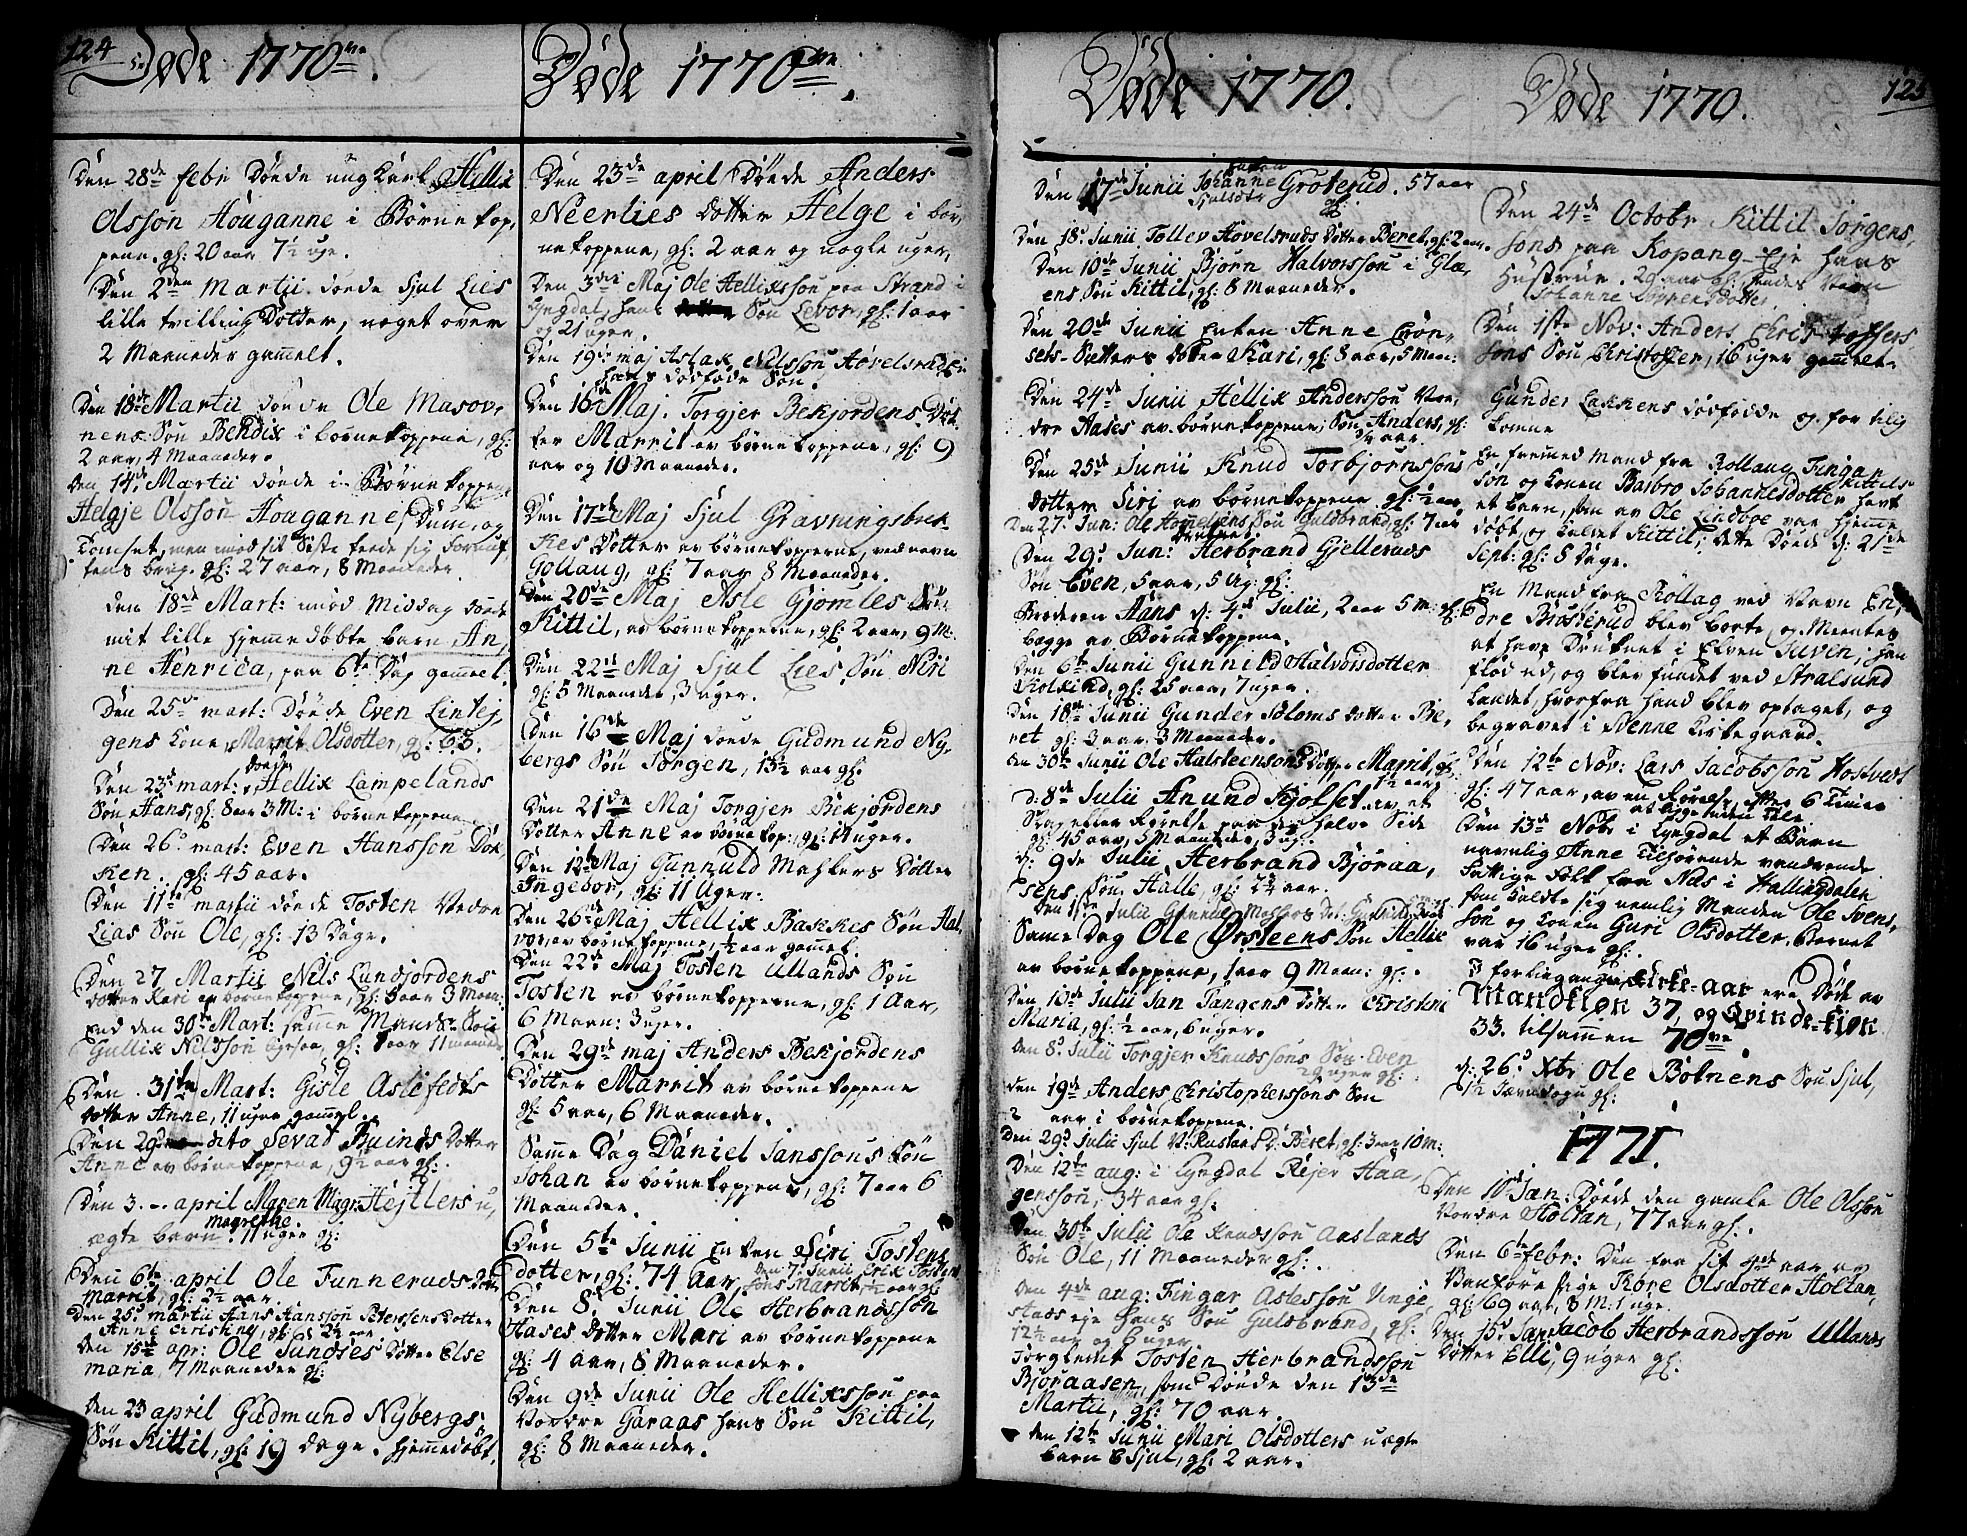 124
Døde 1770ve.
Den 28de febr døde ung karl Hellix
Olsson Houganne i Børnekop,
pene, gl: 20 aar 7½ uge.
Den 2den Martii døde Sjul Lies
lille tvilling Dotter, noget over
2 Maaneder gammelt.
Den 18de Martii døde Ole Masov,
nens Søn Bendix i børnekoppene, gl:
2 aar, 4 Maaneder.
Den 14de Martii døde i Børnekoppene
Helgje Olsson Houganne, Dum, og
gl: 27 aar, 8 Maaneder
Den 18de Mart: imod Middag døde
mit lille hjemmedøbte barn An,
ne Henrica, paa 6te Dag gammel.
Den 25de mart: Døde Even Lintej,
gens kone, Marrit Olsdotter, gl: 63.
Den 23de mart: døde Hellix Lampelands
Søn Hans, gl: 8 aar 3 M: i børnekoppene
Den 26de mart: Even Hansson Dok,
ken. gl: 45 aar.
Den 11te martii døde Tosten Vedre
Lias Søn Ole, gl: 13 Dage.
Den 27 Martii Nils Lundjordens
dotter Kari av børnekoppene, gl: 3 aar 3 Maan:
End den 30te Mart: samme Mands Søn
Gullix Nilsson ligesaa, gl: 1 aar 11 maaneder
Den 31te Mart: Gisle Aslefedts
dotter Anne, 11 uger gammel.
Den 29de dito Sevad Ruinds dotter
Anne av børnekoppene, 9½ aar gl:
Den 3. april Maren Magr: Hejtlers u,
magrethe.
ægte barn. 11 uger gl:
Den 6te april Ole Funneruds dotter
Marrit, gl: 2½ aar.
Den 25de martii Hans Hansson Peterssens dotter
Anne Cristine, gl: 2½ aar
Den 15de apr: Ole Sundses Dotter Else
maria, 7 Maaneder gl:
Den 23 april Gudmund Nybergs
Søn Kittil, gl: 19 dage. hjemmedøbt.
Døde 1770ve.
Den 23de april Døde Anders
Neerlies dotter Helge i bør,
nekoppene, gl: 2 aar og nogle uger,
Den 3die Maj Ole Hellixsson paa Strand i
Lyngdal, hans Søn Levor, gl: 1 aar
og 21 uger.
Den 19de maj Aslak Nilsson Hovelsrud
hans dødfødde Søn.
Den 16de Maj. Torgjer Bekjordens Dot,
ter Marrit av børnekoppene, gl: 9
aar og 10 Maaneder.
Den 17de Maj Sjul Gravningsbek
kes dotter av børnekopperne, ved navn
Gollaug, gl: 7 aar 8 Maaneder.
Den 20de Maj Asle Gjomles Søn
Kittil, av børnekopperne, gl: 2 aar, 9 M:
Den 22de Maj Sjul Lies Søn Niri
gl: 5 Maaneder, 3 uger.
Den 16de Maj døde Gudmund Ny,
bergs Søn Jorgen, 13½ aar gl:
Den 21de Maj Torgjer Bekjordens
Dotter Anne av børnekop: gl: 14 uger.
Den 12te Maj Gunnuld Mohkers Dotter
Ingebor, gl: 11 Uger.
Den 26de Maj Hellix Bakkes Søn Hal,
vor, av børnekoppene, ½ aar gammel.
Den 22de Maj Tosten Ullands Søn
Tosten av børnekopperne, gl: 1 Aar,
6 Maan: 3 uger.
Den 29de maj Anders Bekjordens
Dotter Marrit av børnekoppene
gl: 5 aar, 6 Maaneder.
Samme Dag Daniel Janssons Søn
Johan av børnekoppene, gl: 7 aar 6
Maaneder.
Den 5te Junii Enken Siri Tostens
dotter, gl: 74 Aar. Den 7de Junii Erik Tosten
sons Marrit ½ aar gl:
Den 8de Junii Ole Herbrandsson
Hases dotter Mari av børnekoppene
gl: 4 aar, 8 Maaneder.
Den 9de Junii Ole Hellixsson paa
Vordre Garaas hans Søn Kittil,
gl: 8 Maaneder.
Døde 1770.
Den 17de Junii Enken Johanne Groterud. 57 aar
gl:
Den 18de Junii Tollev Hovelsruds dotter Beret, gl: 2 aar.
Den 10de Junii Bjørn Halvorsson i Glæ,
ens Søn Kittil, gl: 8 Maaneder.
Den 20de Junii Enken Anne Eron,
sets-Sætters dotter Kari, gl: 8 aar, 5 Maan:
Den 24de Junii Hellix Andersson Vor,
dre Hases av børnekoppene, Søn Anders, gl:
aar.
Den 25de Junii Knud Torbjornssons
dotter Siri av børnekoppene gl: ½ aar
Den 27de Jun: Ole Homeliens Søn Guldbrand, gl: 7 aar
Den 29de Jun: Herbrand Gjelleruds
Søn Even, 5 aar, 5 Ug: gl:
Broderen Hans d: 4de Julii, 2 aar 5 M: gl:
begge av Børnekoppene.
Den 6te Junii Gunnild Halvorsdotter
Kolkind, gl: 25 aar, 7 uger.
Den 18de Junii Gunder Soloms dotter Be,
ret gl: 3 aar 3 Maaneder.
Den 30te Junii Ole Halsteensons Dotter Marrit, gl:
1½ aar
D: 8de Julii Anund Kjolset av et
Slag eller Rørelse paa den halve Side
gl: 45 aar, 5 Maaneder, 3 ug:
d: 9de Julii Herbrand Bjoraa,
sens Søn Halle, gl: 2½ aar.
Den 1ste Julii Gunnild
Samme Dag Ole Ørsteens Søn Hellix
av børnekoppene, 1 aar 9 Maan: gl:
Den 10de Julii Jan Tangens Dotter Christini
Maria, gl: ½ aar, 6 uger.
Den 8de Julii Torgjer Knudssons Søn Even
29 uger gl:
Den 19de Anders Christopherssons Søn
2 aar i børnekoppene.
Den 29de Julii Sjul V: Rustaas D: Beret, gl: 3 aar 10 M:
Den 12te aug: i Lyngdal Rejer Haa,
gensson, 34 aar gl:
Den 30te Julii Ole Knudsson Aaslands
Søn Ole, 11 Maaneder gl:
Den 4de aug: Fingar Aslesson Unge,
stads eje hans Søn Gulsbrand, gl:
12½ aar og 6 uger
Forglemt Tosten Herbrandsson
Bjoraasen, som døde den 13de
Martii, gl: 70 aar.
Den 12te Junii Mari Olsdotters uægte
barn Sjul, gl: 2 aar.
Døde 1770.
125
Den 24de Octobr Kittil Jorgens,
sons paa Kopang-Eje hans
Hustrue. 29 aar gl: hendes Navn
Johanne
Den 1ste Nov: Anders Christoffers
sons Søn Christoffer, 16 uger gammel.
Gunder Lakkens dødfødde og for tilig
komne
En fremmed Mand fra Rollaug Fingar Kittils,
son og konen Barbro Johannesdotter havt
et barn, som av Ole Lindboe var hjemme
døbt, og kaldet Kittil; dette Døde d: 21de
Sept: gl: 5 Dage.
En Mand fra Rollag ved Navn En,
dre Brosterud blev borte og Meentes
at have Druknet i Elven Juven, han
flød ud, og blev fundet ved Stralsund
Landet, hvorfra hand blev optaget, og
begravet i Svenne Kirkegaard.
Den 12te Nov: Lars Jacobsson Hostvedt
gl: 47 aar, av en Rørelse, efter 6 Timer
Den 13de Nobr i Lyngdal et Barn
navnlig Anne tilhørende vandrende
fattige folk fra Nas i Hallingdalen
som kaldte sig nemlig Manden Ole Svens,
son og konen Guri Olsdotter. Barnet
var 16 uger gl:
I forbigangne Kirke-aar ere Døde av
Mandkiøn 37, og Qvinde-kiøn
33. tilsammen 70ve.
d: 26de Xbr Ole Botnens Søn Sjul,
gl:
1771.
Den 10de Jan: Døde den gamle Ole Olsson
Vordre Holtan, 77 aar gl:
Den 6te febr:
Rore Olsdotter Holtan,
gl: 69 aar, 8 M. 1 uge.
Den 15de Jan: Jacob Herbrandsson Ullands
Dotter Elli, 9 uger gl: